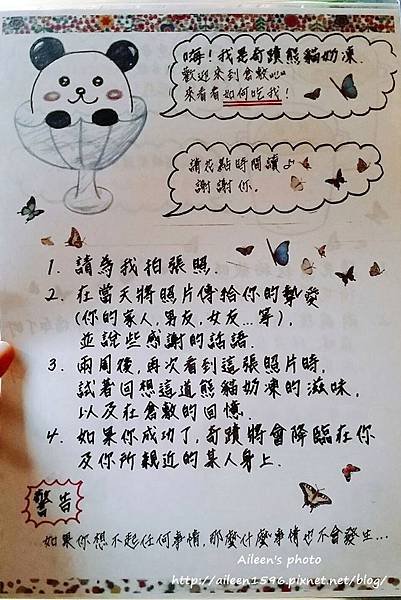 嗨！我是奇蹟熊貓奶凍.
歡迎來到倉敷吧
來看看如何吃我！
請花點時間讀♪
謝謝你.
1. 請為我拍張照.
2. 在當天將照片傳給你的摯愛
(你的家人,男友,女友...等),
並說些感謝的話語.
3. 兩周後,再次看到這張照片時,
試著回想這道熊貓奶凍的滋味,
以及在倉敷的回憶.
4. 如果你成功了,奇蹟將會降臨在你
及你所親近的某人身上.
警告
如果你想不起任何事情,那麼什麼事情也不會發生...
Aileen's photo
http://aileen1596.pixnet.net/blog/